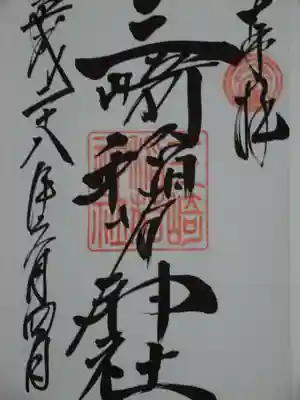 奉拝
三崎稲荷神社
平成二十八年六月四日